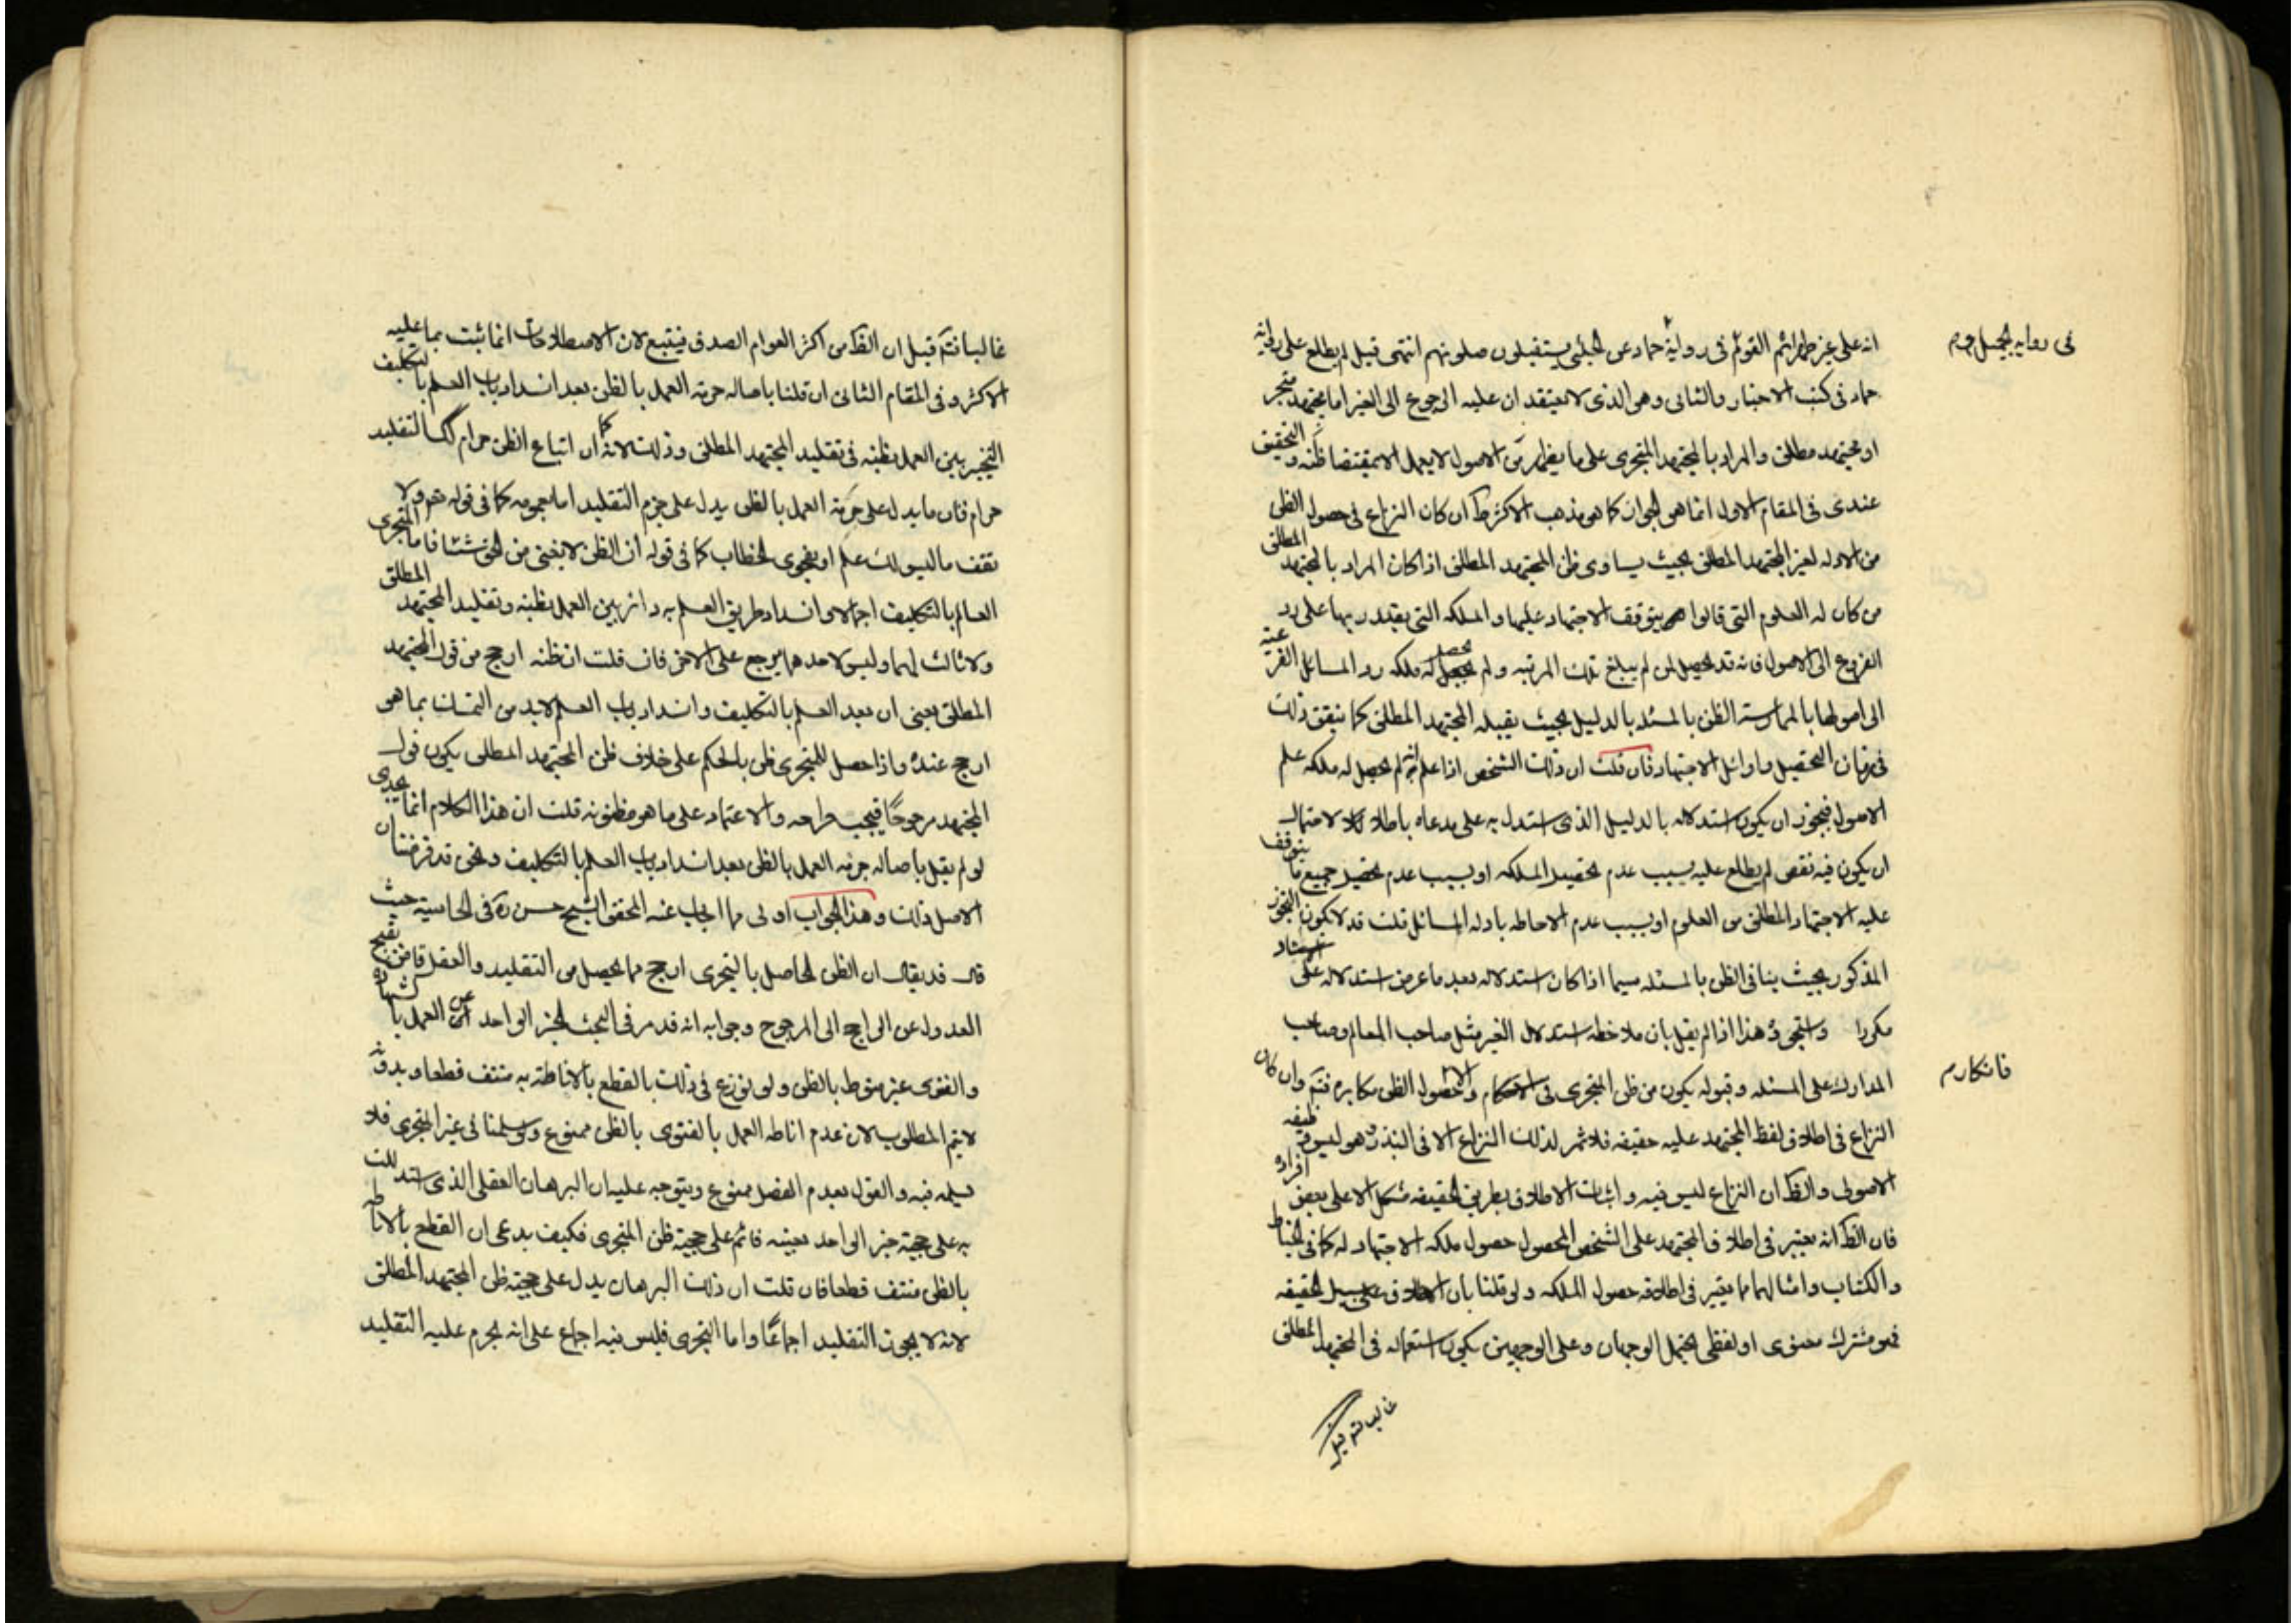 انه على غير طهرائم القوم فى رواية حماد عن الحلبى يستقبلون صلوتهم انتهى قيل لم يطلع على رواية
فى رواية الحلبى
حماد فى كتب الاخبار والثانى وهى الذى لا يعتقد ان عليه الرجوع الى الغير اما مجتهد متجز
او مجتهد مطلق والمراد بالمجتهد المتجزى على ما يظهر من الاصول لا يعمل الا بمقتضا ظنه والتحقيق
عندى فى المقام الاول انما هى الجواز كما هو مذهب الاكثر ان كان النزاع فى حصول الظن
من الادله لغير المجتهد المطلق بحيث يساوى ظن المجتهد المطلق اذا كان المراد بالمجتهد المطلق
من كان له العلوم التى قالوا يتوقف الاجتهاد عليها والملكه التى يقتدر بها على رد
الفروع الى الاصول فانه قد يحصل لمن لم يبلغ تلك المرتبه ولم يحصل له ملكه رد المسائل الفرعية
الى اصولها بالممارسة الظن بالمسئله بالدليل بحيث يقبله المجتهد المطلق كما يتفق ذلك
فى زمان التحصيل واوائل الاجتهاد فان قلت ان ذلك الشخص اذا علم انه لم يحصل له ملكه علم
الاصول فيجوز ان يكون استدلاله بالدليل الذى استدل به على مدعاه باطلا لاحتمال
ان يكون فيه نقص لم يطلع عليه بسبب عدم تحصيل الملكه او بسبب عدم تحصيل جميع ما يتوقف
عليه الاجتهاد المطلق من العلوم او بسبب عدم الاحاطه بادله المسائل قلت قد لا يكون التجوز
المذكور بحيث ينافى الظن بالمسئله سيما اذا كان استدلاله بعد ما عرض استدلاله على استاد
مكررا وهذا اذا لم يقل بان ملاحظه استدلال الغير مثل صاحب المعالم وصاحب
المدارك على المسئله وقبوله يكون من ظن المتجزى فى الاحكام والا فحصول الظن مكابره فتم وان كان
فانكاره
النزاع فى اطلاق لفظ المجتهد عليه حقيقه فلا ثمر لذلك النزاع الا فى النذر وهو ليس وظيفه
الاصولى والظ ان النزاع ليس فيه واثبات الاطلاق بطريق الحقيقه مشكل الا على بعض افراده
فان الظ انه يعتبر فى اطلاق المجتهد على الشخص حصول ملكه الاجتهاد له كما فى الخياط
والكتاب وامثالهما مما يعتبر فى اطلاقه حصول الملكه ولو قلنا بان الاطلاق على سبيل الحقيقه
فهو مشترك معنوى او لفظى يحتمل الوجهان وعلى الوجهين يكون استعماله فى المجتهد المطلق
غالبا فتم قيل
غالبا فتم قيل ان الظ من اكثر العوام الصدق فيتبع لان الاصطلاحات انما ثبت بما عليه
الاكثر وفى المقام الثانى ان قلنا باصاله حرمة العمل بالظن بعد انسداد باب العلم بالتكليف
التخيير بين العمل بظنه فى تقليد المجتهد المطلق وذلك لانه كما ان اتباع الظن حرام كك التقليد
حرام فان ما يدل على حرمة العمل بالظن يدل على حرم التقليد اما بعمومه كما فى قوله تعر ولا
تقف ما ليس لك علم او بفحوى الخطاب كما فى قوله ان الظن لا يغنى من الحق شيئا فاما المتجزى
العالم بالتكليف اجمالا وانسداد طريق العلم به دائر بين العمل بظنه وتقليد المجتهد المطلق
ولا ثالث لهما وليس لاحدهما مرجح على الاخر فان قلت ان ظنه ارجح من قول المجتهد
المطلق يعنى ان بعد العلم بالتكليف وانسداد باب العلم لابد من التمسك بما هو
ارجح عنده واذا حصل للمتجزى ظن بالحكم على خلاف ظن المجتهد المطلق يكون قول
المجتهد مرجوحا فيجب طرحه والاعتماد على ما هو مظنونه قلت ان هذا الكلام انما يجدى
لو لم يقل باصاله حرمه العمل بالظن بعد انسداد باب العلم بالتكليف ونحن قد فرضنا ان
الاصل ذلك وهذا الجواب اولى مما اجاب عنه المحقق الشيخ حسن ره فى الحاشية حيث
قال قد يقال ان الظن الحاصل بالتجزى ارجح مما يحصل من التقليد والعقل قاض بقبح
العدول عن الراجح الى المرجوح وجوابه انه قد مر فى البحث الخبر الواحد ان العمل بالشهادة
والفتوى غير منوط بالظن ولو نوزع فى ذلك بالقطع بالاناطة به منتف قطعا وبدونه
لا يتم المطلوب لان عدم اناطه العمل بالفتوى بالظن ممنوع ولو سلمنا فى غير المتجزى فلا
نسلمه فيه والقول بعدم الفصل ممنوع ويتوجه عليه ان البرهان العقلى الذى استدللت
به على حجية خبر الواحد بعينه قائم على حجية ظن المتجزى فكيف يدعى ان القطع بالاناطه
بالظن منتف قطعا فان قلت ان ذلك البرهان يدل على حجية ظن المجتهد المطلق
لانه لا يجوز التقليد اجماعا واما التجزى فليس فيه اجماع على انه يحرم عليه التقليد